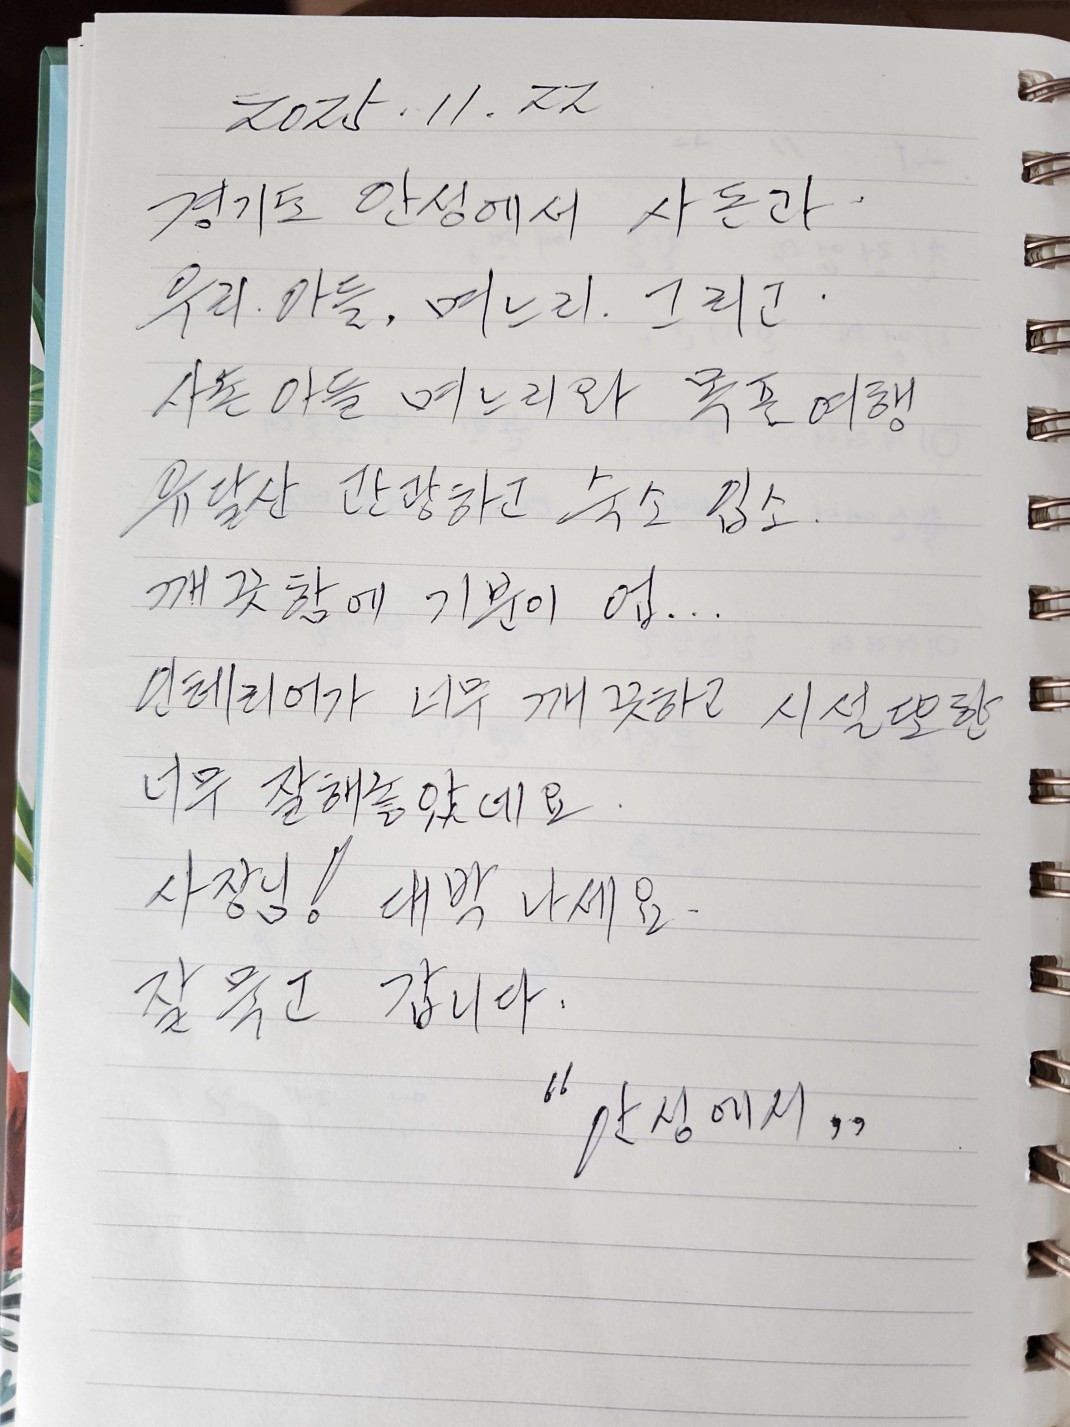 2025. 11. 22
경기도 안성에서 사돈과.
우리. 아들, 며느리. 그리고.
사돈 아들 며느리와 목포여행
유달산 관광하고 숙소 입소.
깨끗함에 기분이 업...
인테리어가 너무 깨끗하고 시설또한
너무 잘해놓았네요.
사장님! 대박 나세요.
잘 묵고 갑니다.
"안성에서,,